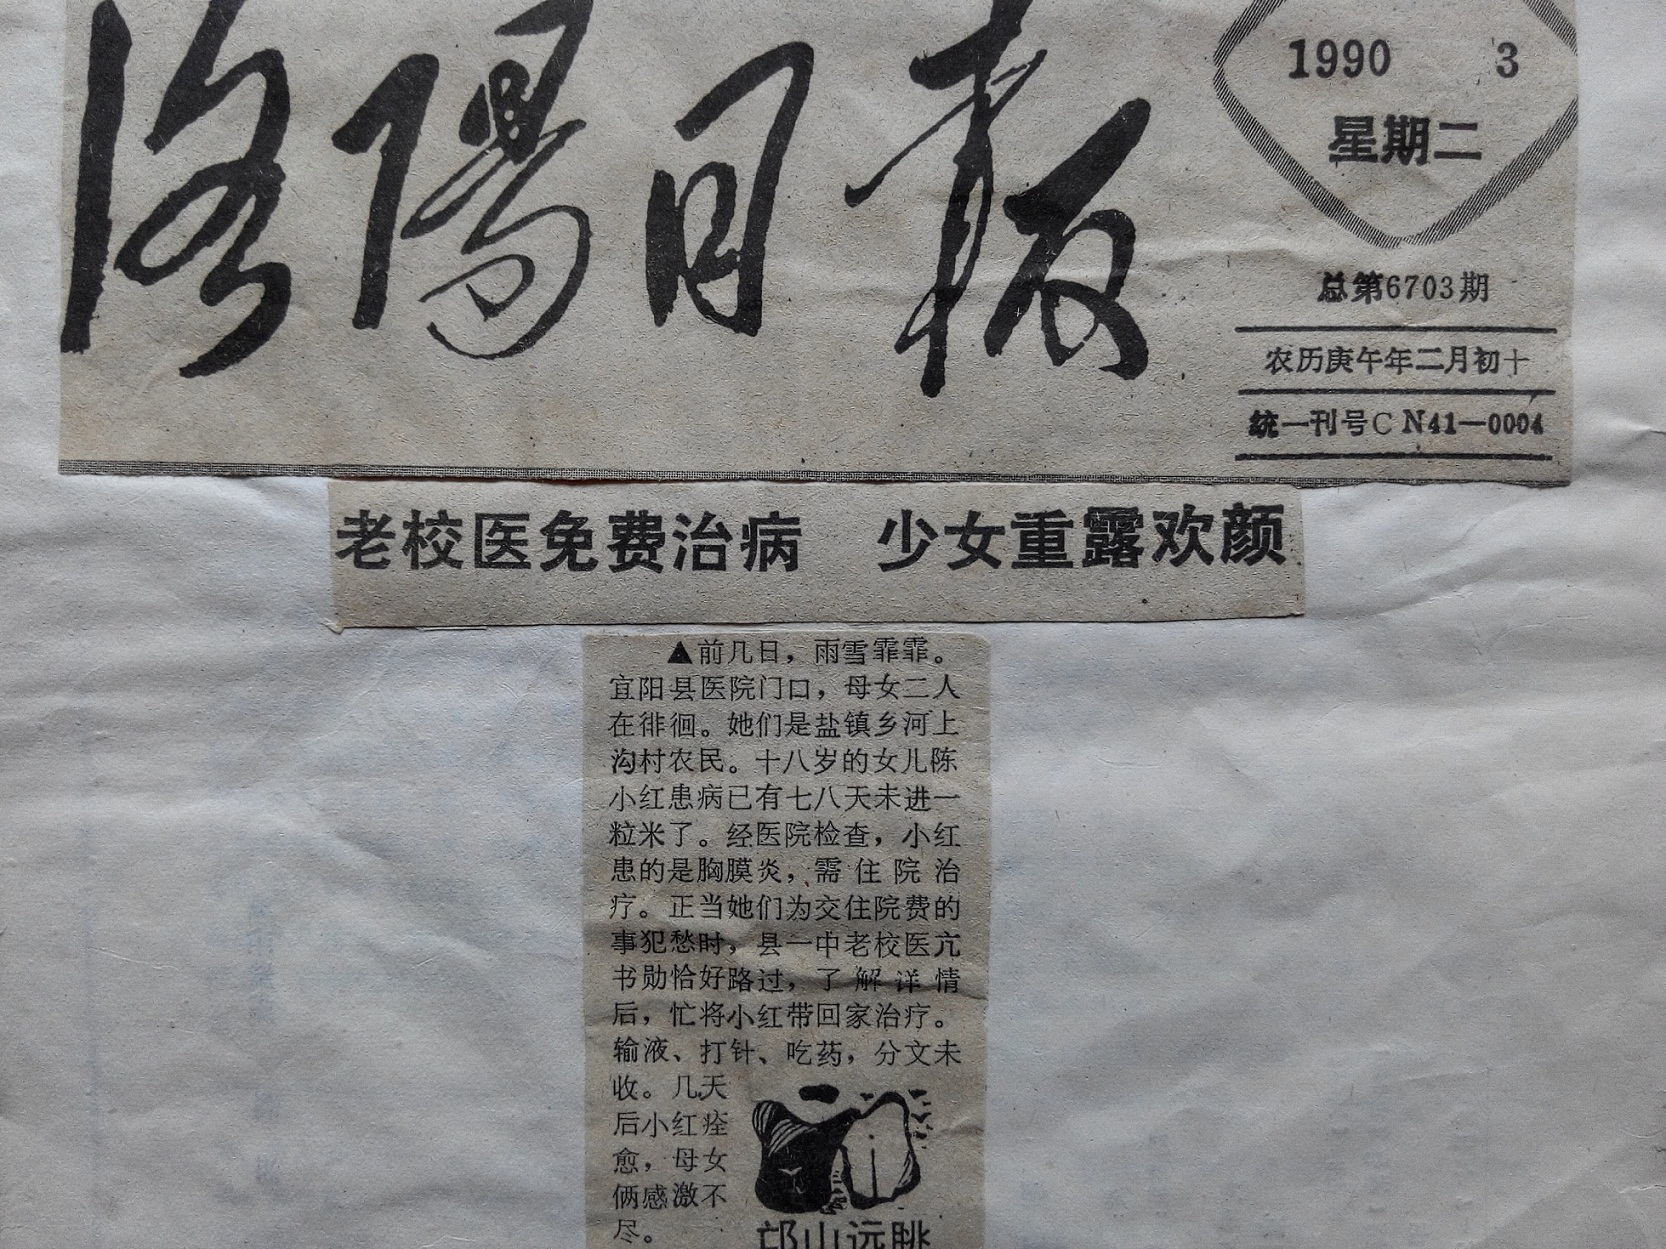 洛陽日报
1990 3
星期二
总第6703期
农历庚午年二月初十
统一刊号CN41—0004
老校医免费治病 少女重露欢颜
▲前几日，雨雪霏霏。
宜阳县医院门口，母女二人
在徘徊。她们是盐镇乡河上
沟村农民。十八岁的女儿陈
小红患病已有七八天未进一
粒米了。经医院检查，小红
患的是胸膜炎，需住院治
疗。正当她们为交住院费的
事犯愁时，县一中老校医亢
书勋恰好路过，了解详情
后，忙将小红带回家治疗。
输液、打针、吃药，分文未
收。几天
后小红痊
愈，母女
俩感激不
尽。
邙山远眺